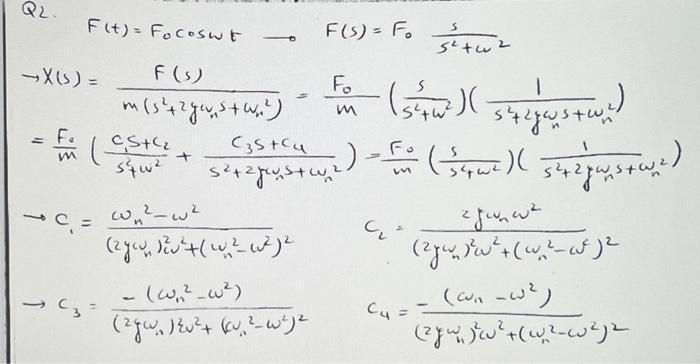 Q2.
F(t) = F₀ cos ωt → F(s) = F₀ s/(s²+ω²)
→ X(s) = F(s)/(m(s²+2ζωₙs+ωₙ²)) = F₀/m (s/(s²+ω²))(1/(s²+2ζωₙs+ωₙ²))
= F₀/m ((c₁s+c₂)/(s²+ω²) + (c₃s+c₄)/(s²+2ζωₙs+ωₙ²)) = F₀/m (s/(s²+ω²))(1/(s²+2ζωₙs+ωₙ²))
→ c₁ = (ωₙ²-ω²)/((2ζωₙ)²ω²+(ωₙ²-ω²)²) c₂ = 2ζωₙω²/((2ζωₙ)²ω²+(ωₙ²-ω²)²)
→ c₃ = -(ωₙ²-ω²)/((2ζωₙ)²ω²+(ωₙ²-ω²)²) c₄ = -(ωₙ-ω²)/((2ζωₙ)²ω²+(ωₙ²-ω²)²)